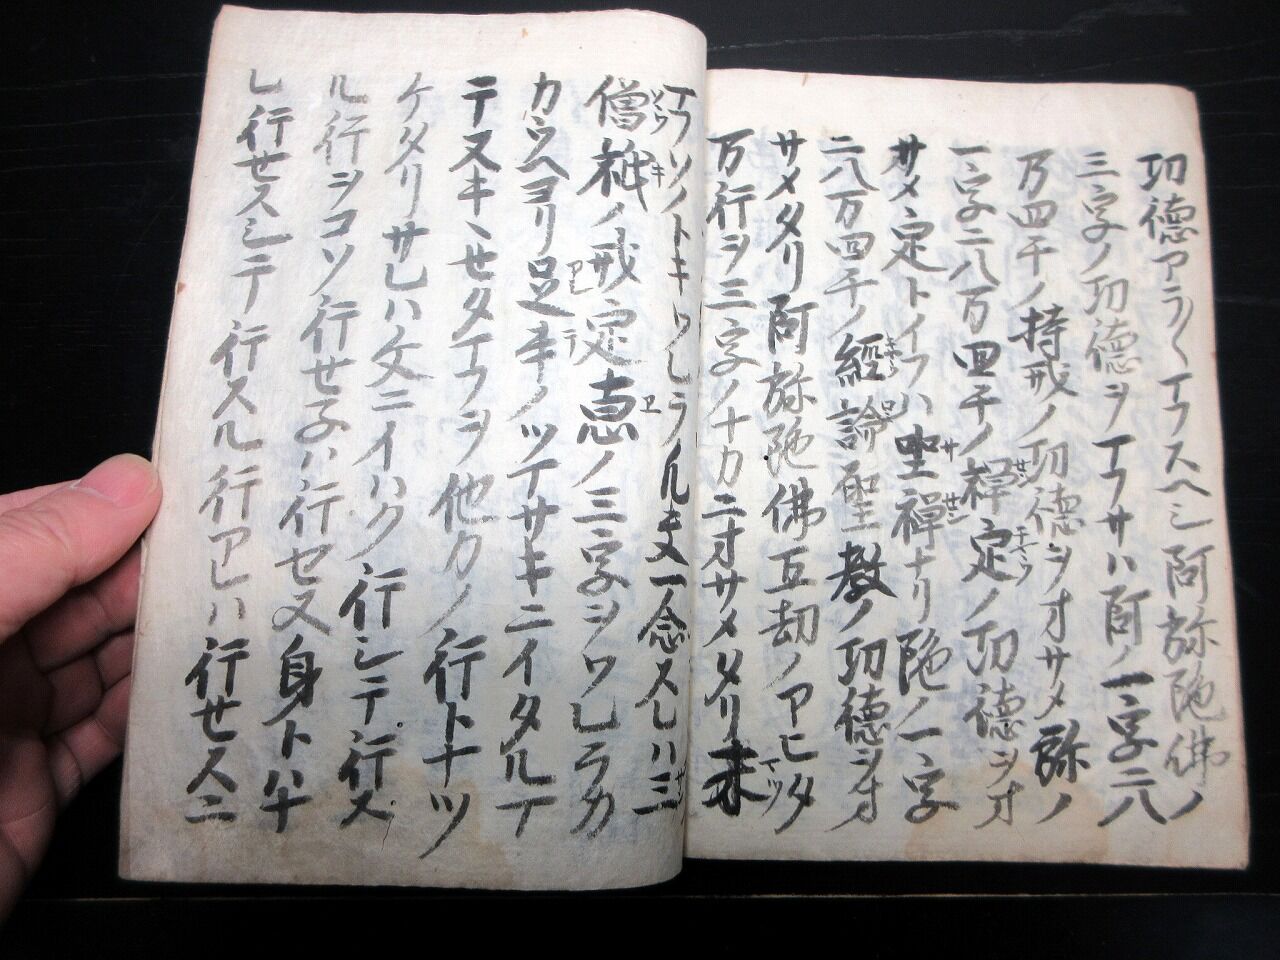 功德アラ〱イフスヘシ阿弥陀佛ノ
三字ノ功德ヲイフサハ阿ノ一字ニ八
万四千ノ持戒ノ功德ヲオサメ弥ノ
一字ニ八万四千ノ禅定ノ功德ヲオ
サメ定トイフハ坐禅ナリ陀ノ一字
ニ八万四千ノ經論聖教ノ功德ヲオ
サメタリ阿弥陀佛五劫ノアヒタ
万行ヲ三字ノナカニオサメタリ末
イフソノトキワレラ凡夫一念スレハ三
僧祇ノ戒定恵ノ三字ヲワレラカ
カウヘヨリ足キノツテサキニイタルテ
テヌキヽセタテフヲ他力ノ行トナツ
ケタリサレハ文ニイハク行シテ行ス
ル行ヲコソ行セ子ハ行セヌ身トハナ
レ行セスシテ行スル行アレハ行セスニ